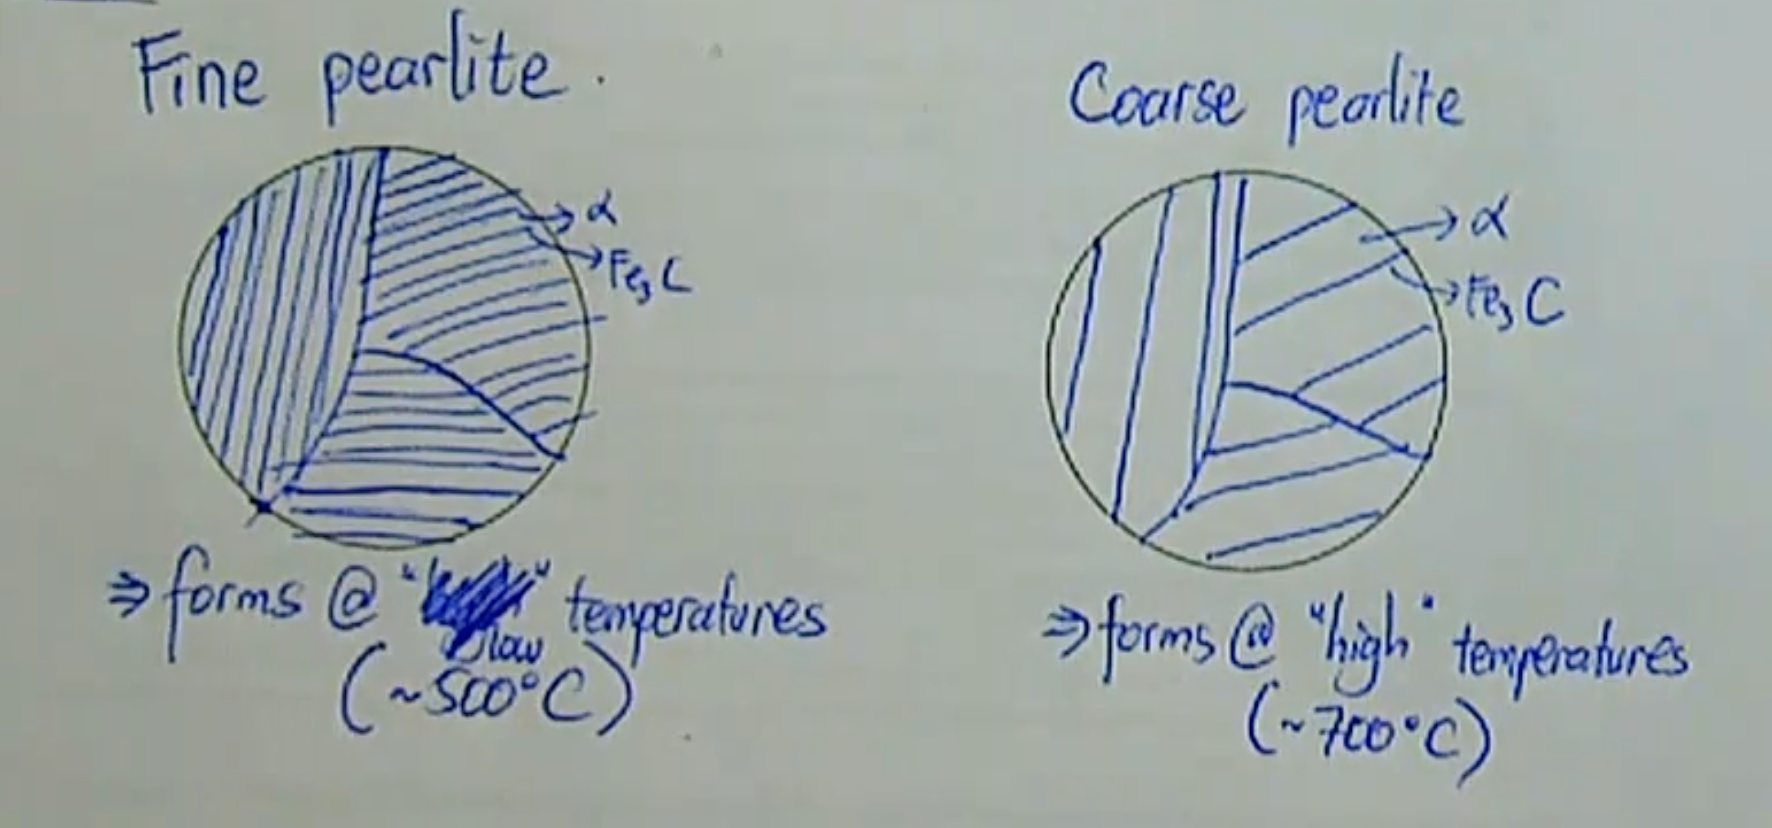 Fine pearlite.
α
Fe₃C
⇒ forms @ "low" temperatures
(~500°C)
Coarse pearlite
α
Fe₃C
⇒ forms @ "high" temperatures
(~700°C)